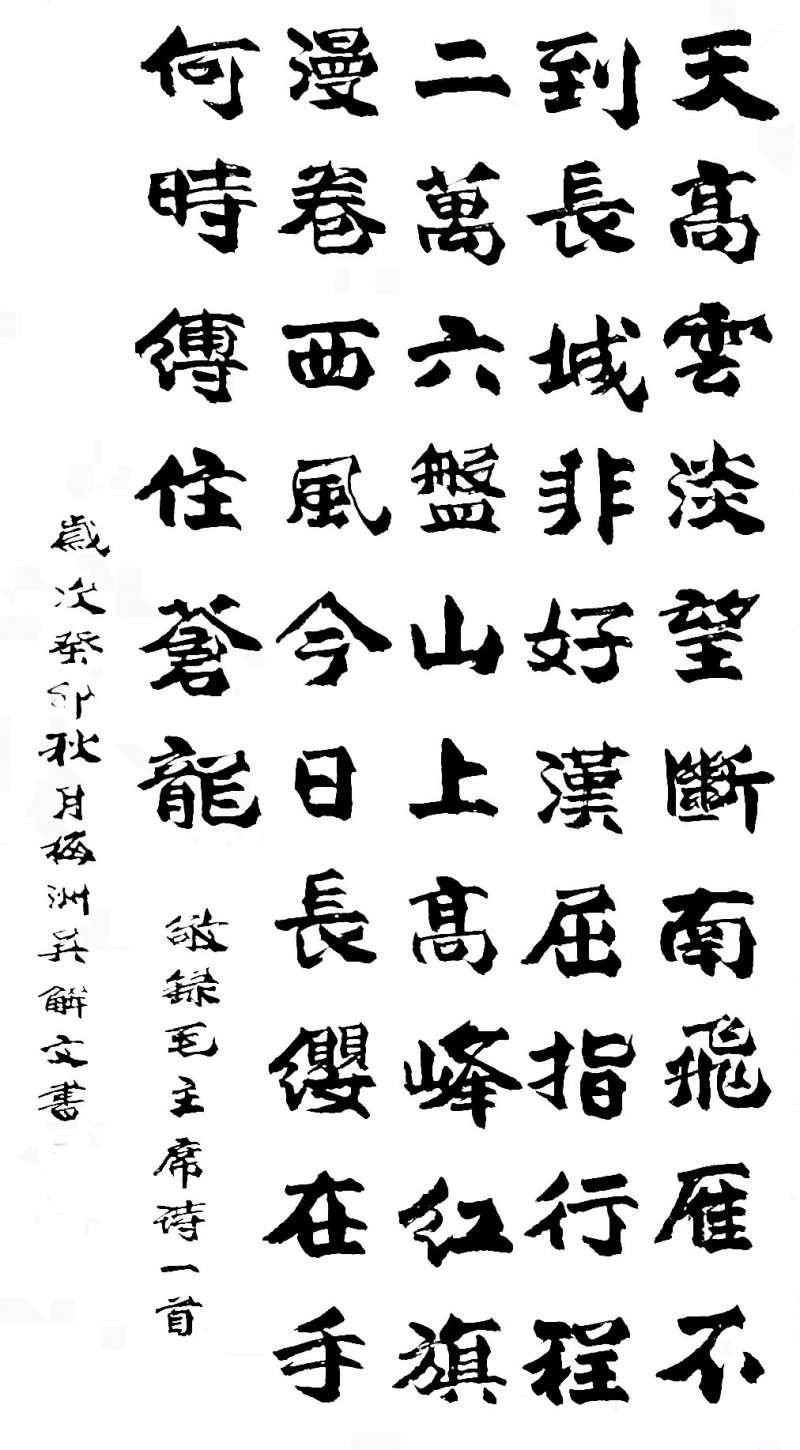 天高雲淡望斷南飛雁不
到長城非好漢屈指行程
二萬六盤山上高峰紅旗
漫卷西風今日長纓在手
何時縛住蒼龍
敬録毛主席诗一首
歲次癸卯秋月梅洲吴解文書